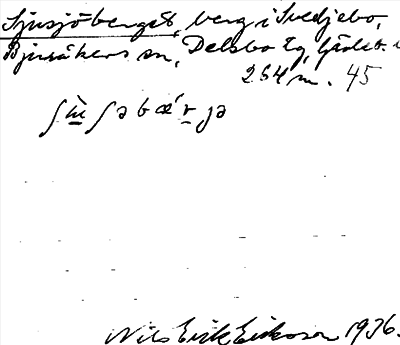 Sjusjöberget, berg i Svedjebo,
Bjuråkers sn, Delsbo tg, Gävleb. l
254 m. 45
ʃɯ̀ʃəbæ´rjə
Nils Erik Eriksson 1936.